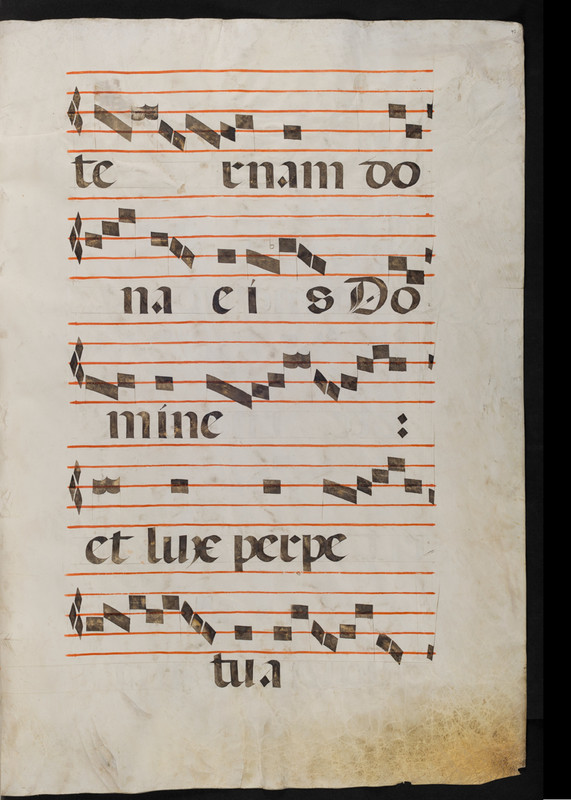 te rnam do
na e i s Do
mine :
et luxe perpe
tua